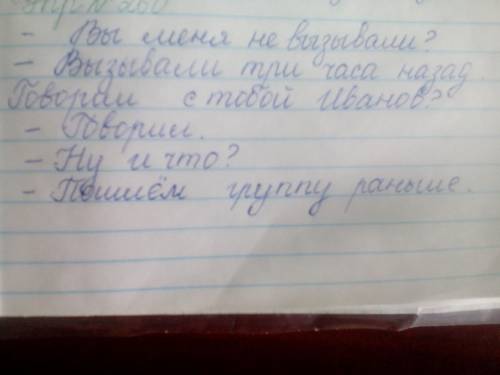 Упр № 260
- Вы меня не вызывали?
- Вызывали три часа назад.
Говорил с тобой Иванов?
- Говорил.
- Ну и что?
- Пошлём группу раньше.